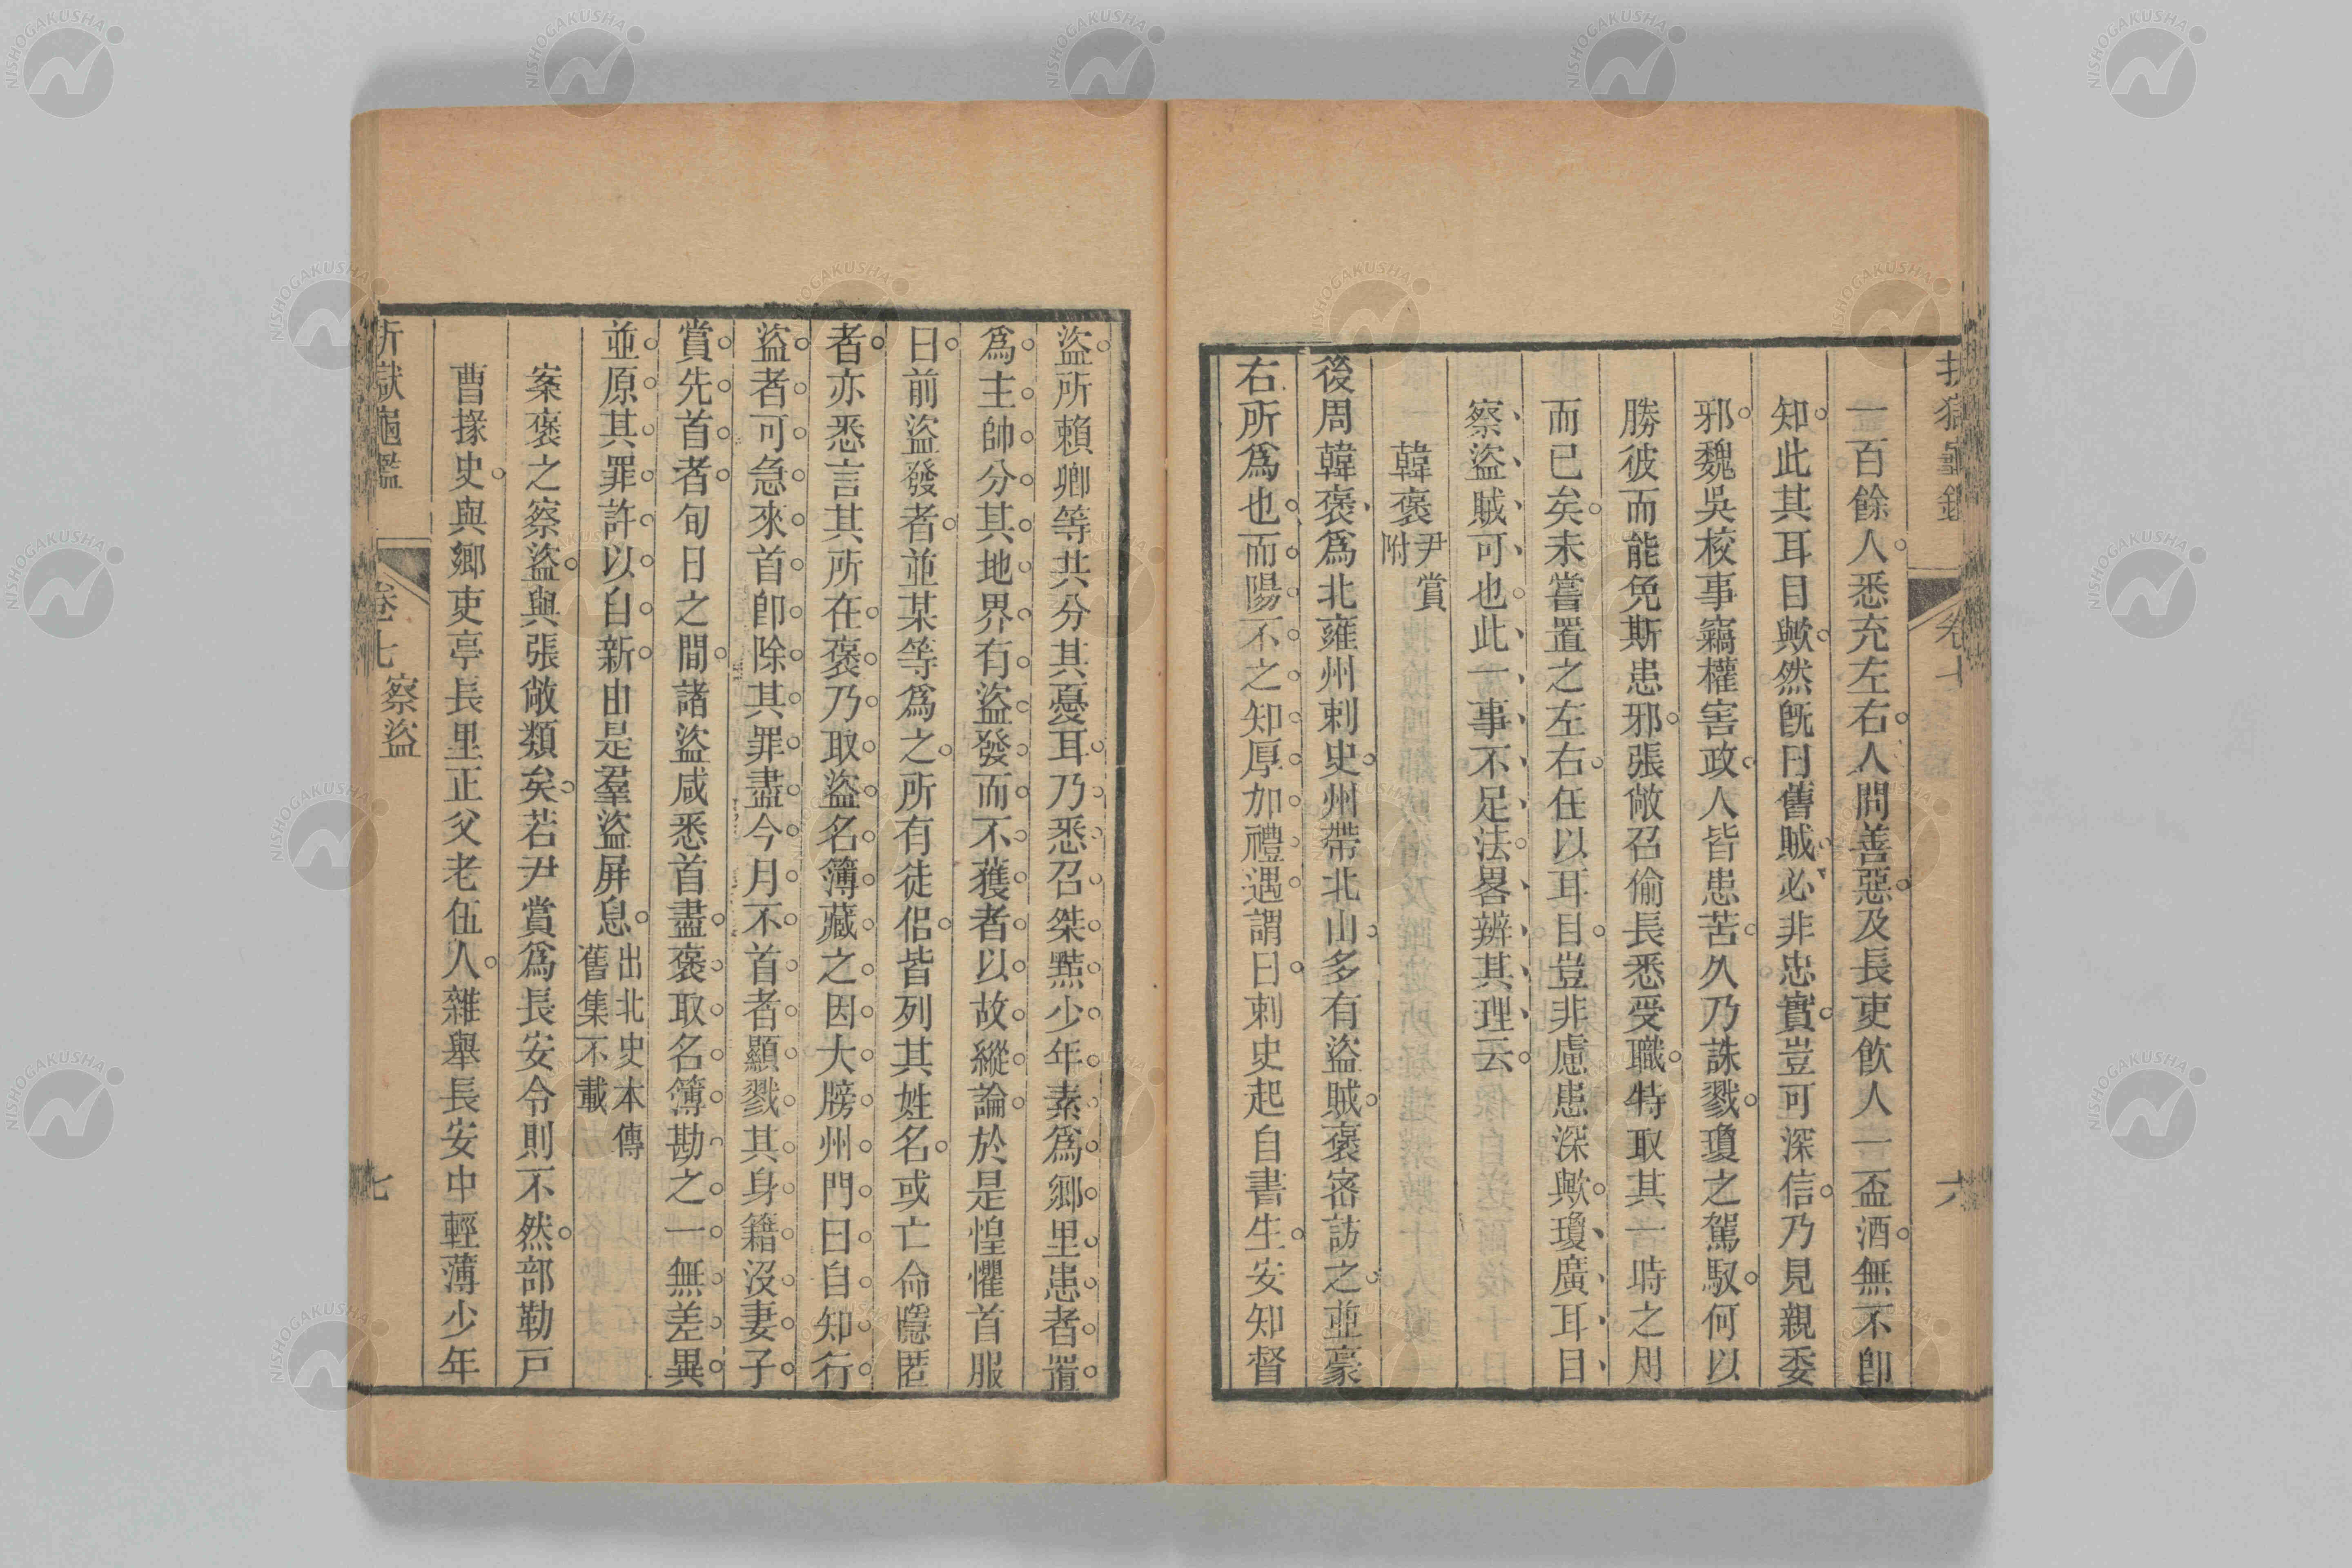 一百餘人悉充左右人問善惡及長吏飮人一盃酒無不卽
知此其耳目歟然旣曰舊賊必非忠實豈可深信乃見親委
邪魏吳校事竊權害政人皆患苦久乃誅戮瓊之駕馭何以
勝彼而能免斯患邪張敞召偷長悉受職特取其一時之用
而已矣未嘗置之左右任以耳目豈非慮患深歟瓊廣耳目
察盜賊可也此一事不足法畧辨其理云
韓褒尹賞附
後周韓褒爲北雍州刺史州帶北山多有盜賊褒密訪之並豪
右所爲也而陽不之知厚加禮遇謂曰刺史起自書生安知督
盜所賴卿等共分其憂耳乃悉召桀黠少年素爲鄉里患者置
爲主帥分其地界有盜發而不獲者以故縱論於是惶懼首服
曰前盜發者並某等爲之所有徒侶皆列其姓名或亡命隱匿
者亦悉言其所在褒乃取盜名簿藏之因大牓州門曰自知行
盜者可急來首卽除其罪盡今月不首者顯戮其身籍沒妻子
賞先首者旬日之間諸盜咸悉首盡褒取名簿勘之一無差異
並原其罪許以自新由是羣盜屏息出北史本傳舊集不載
案褒之察盜與張敞類矣若尹賞爲長安令則不然部勒戶
曹掾史與鄉吏亭長里正父老伍人雜舉長安中輕薄少年
折獄龜鑑 卷七 察盜 七